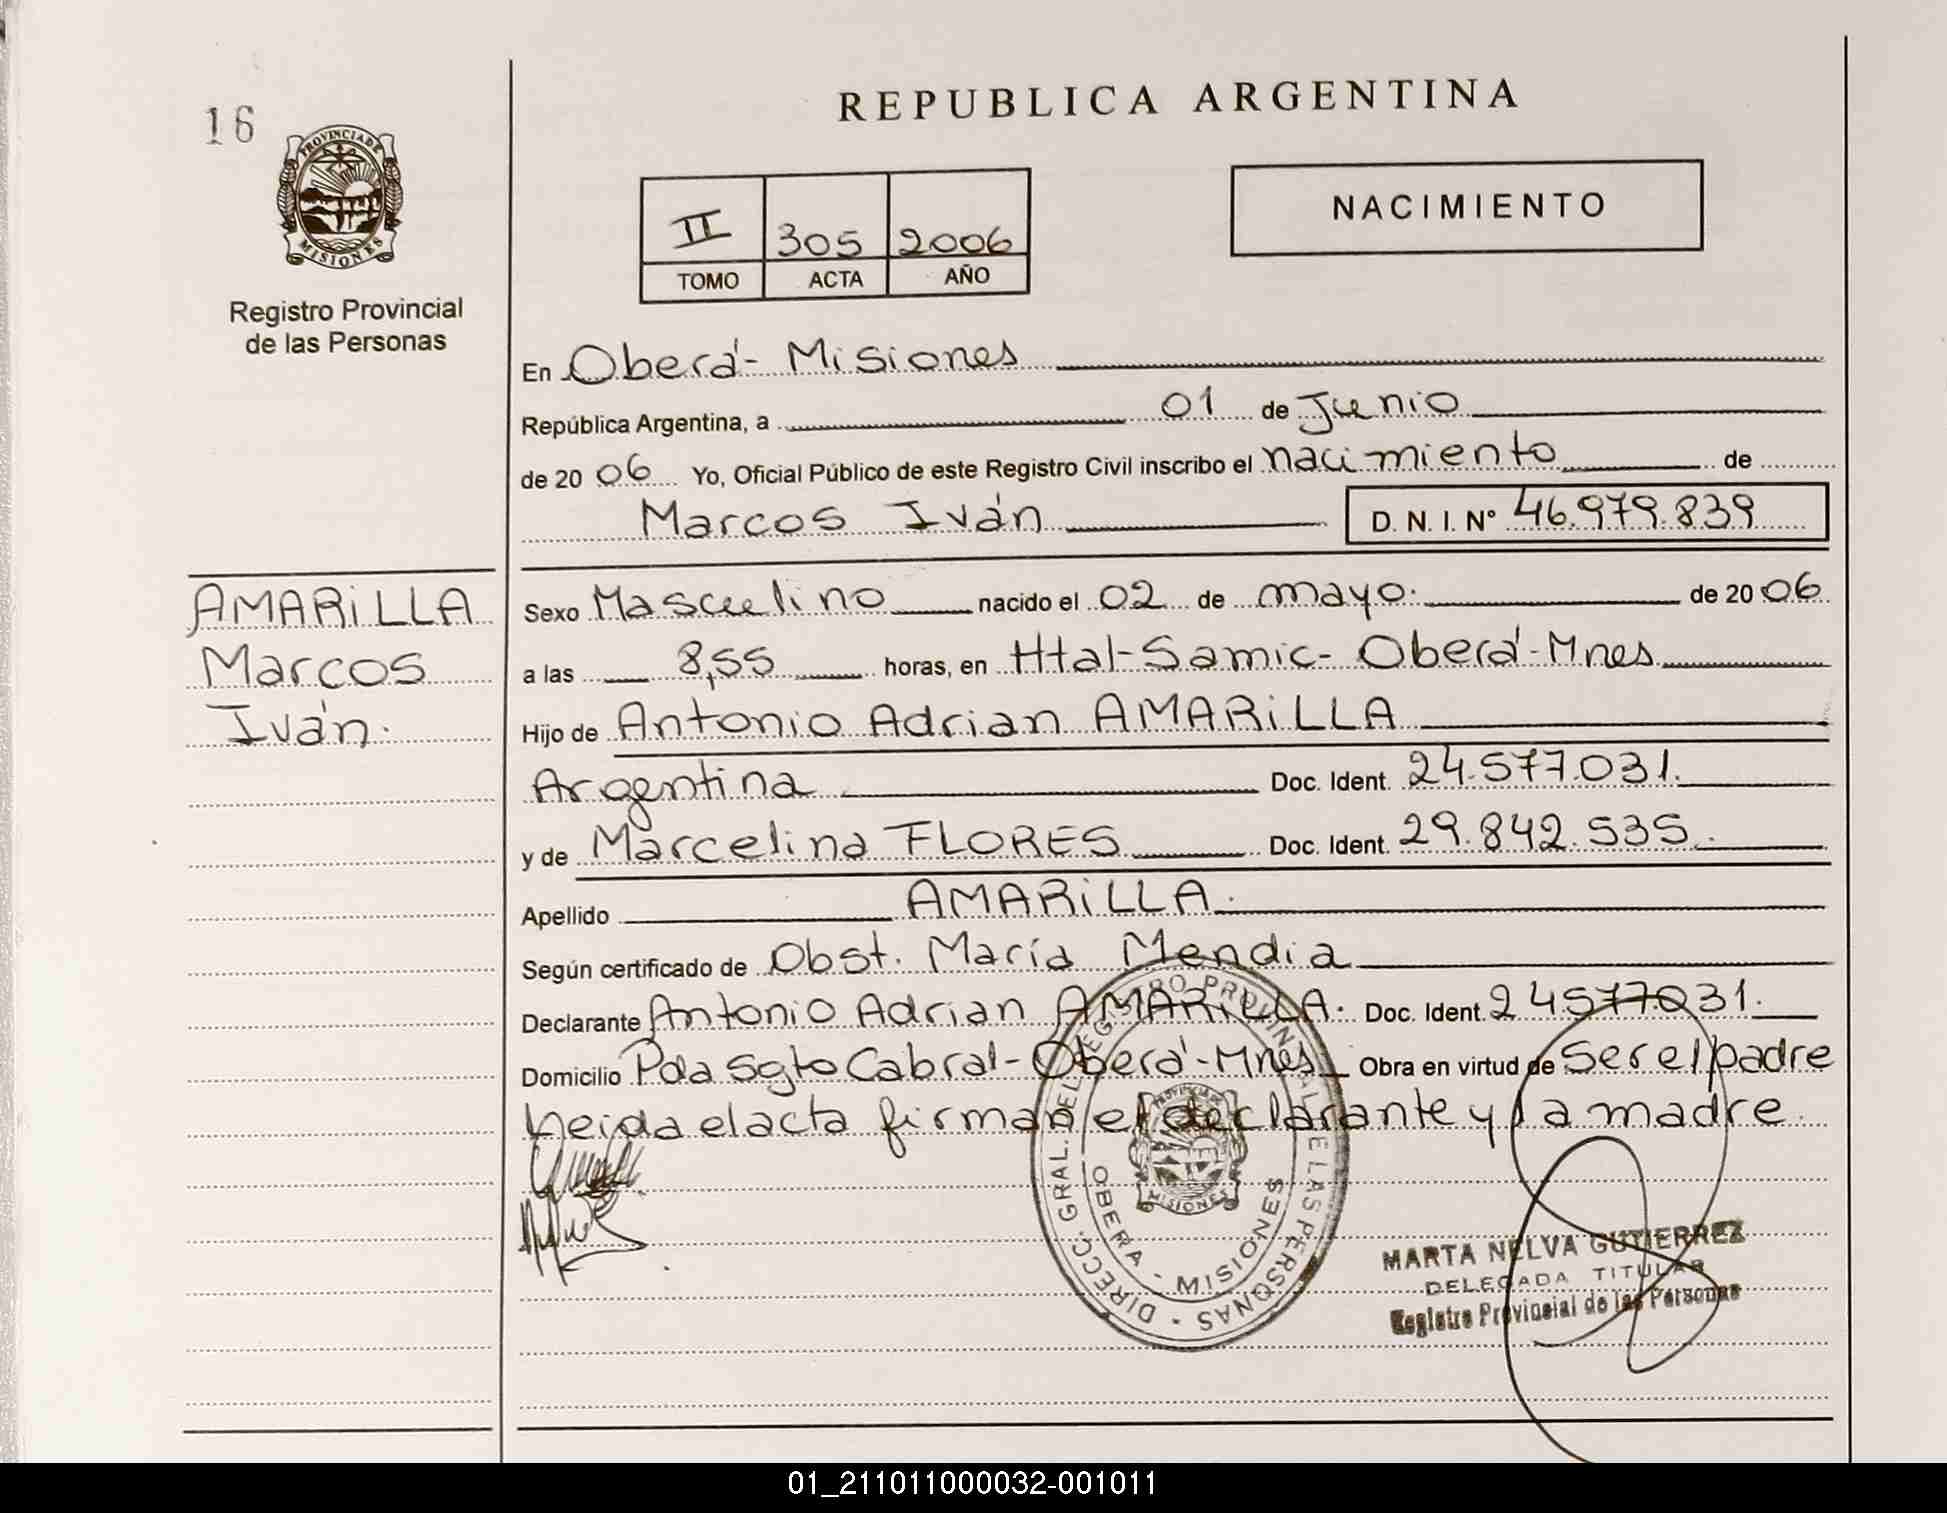 16
PROVINCIA DE
MISIONES
Registro Provincial
de las Personas
REPUBLICA ARGENTINA
II 305 2006
TOMO ACTA AÑO
NACIMIENTO
En Oberá - Misiones
República Argentina, a 01 de Junio
de 20 06 Yo, Oficial Público de este Registro Civil inscribo el nacimiento de
Marcos Iván D. N. I. Nº 46.979.839
AMARiLLA
Marcos
Iván.
Sexo Masculino nacido el 02 de mayo. de 20 06
a las 8,55 horas, en Htal-Samic- Oberá-Mnes
Hijo de Antonio Adrian AMARiLLA
Argentina Doc. Ident. 24.577.031.
y de Marcelina FLORES Doc. Ident. 29.842.535.
Apellido AMARiLLA.
Según certificado de Obst. María Mendia
Declarante Antonio Adrian AMARiLLA. Doc. Ident. 24577031.
Domicilio Pda Sgto Cabral-Oberá-Mnes Obra en virtud de Ser el padre
Leida el acta firman el declarante y la madre.
DIRECC. GRAL. DEL REGISTRO PROVINCIAL DE LAS PERSONAS
OBERA - MISIONES
PROVINCIA DE
MISIONES
MARTA NELVA GUTIERREZ
DELEGADA TITULAR
Registro Provincial de las Personas
01_211011000032-001011